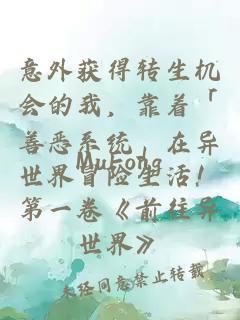 意外获得转生机
会的我，靠着「
善恶系统」在异
世界冒险生活！
第一卷《前往异
世界》
MuLong
未经同意禁止转载